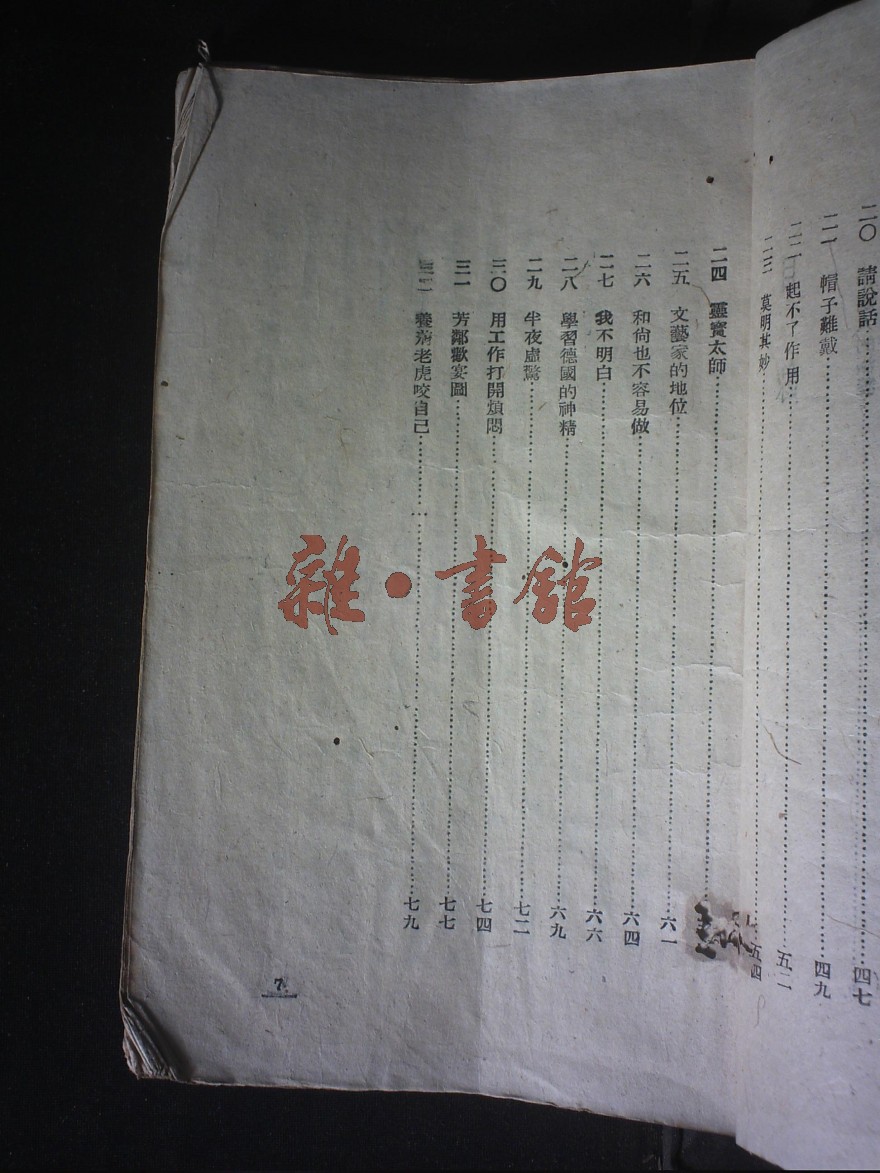 二〇 請說話 四七
二一 帽子難戴 四九
二二 起不了作用 五二
二三 莫明其妙 五四
二四 靈寶太師
二五 文藝家的地位 六一
二六 和尙也不容易做 六四
二七 我不明白 六六
二八 學習德國的神精 六九
二九 半夜虛驚 七二
三〇 用工作打開煩悶 七四
三一 芳鄰歡宴圖 七七
三二 養病老虎咬自己 七九
7
雜·書館